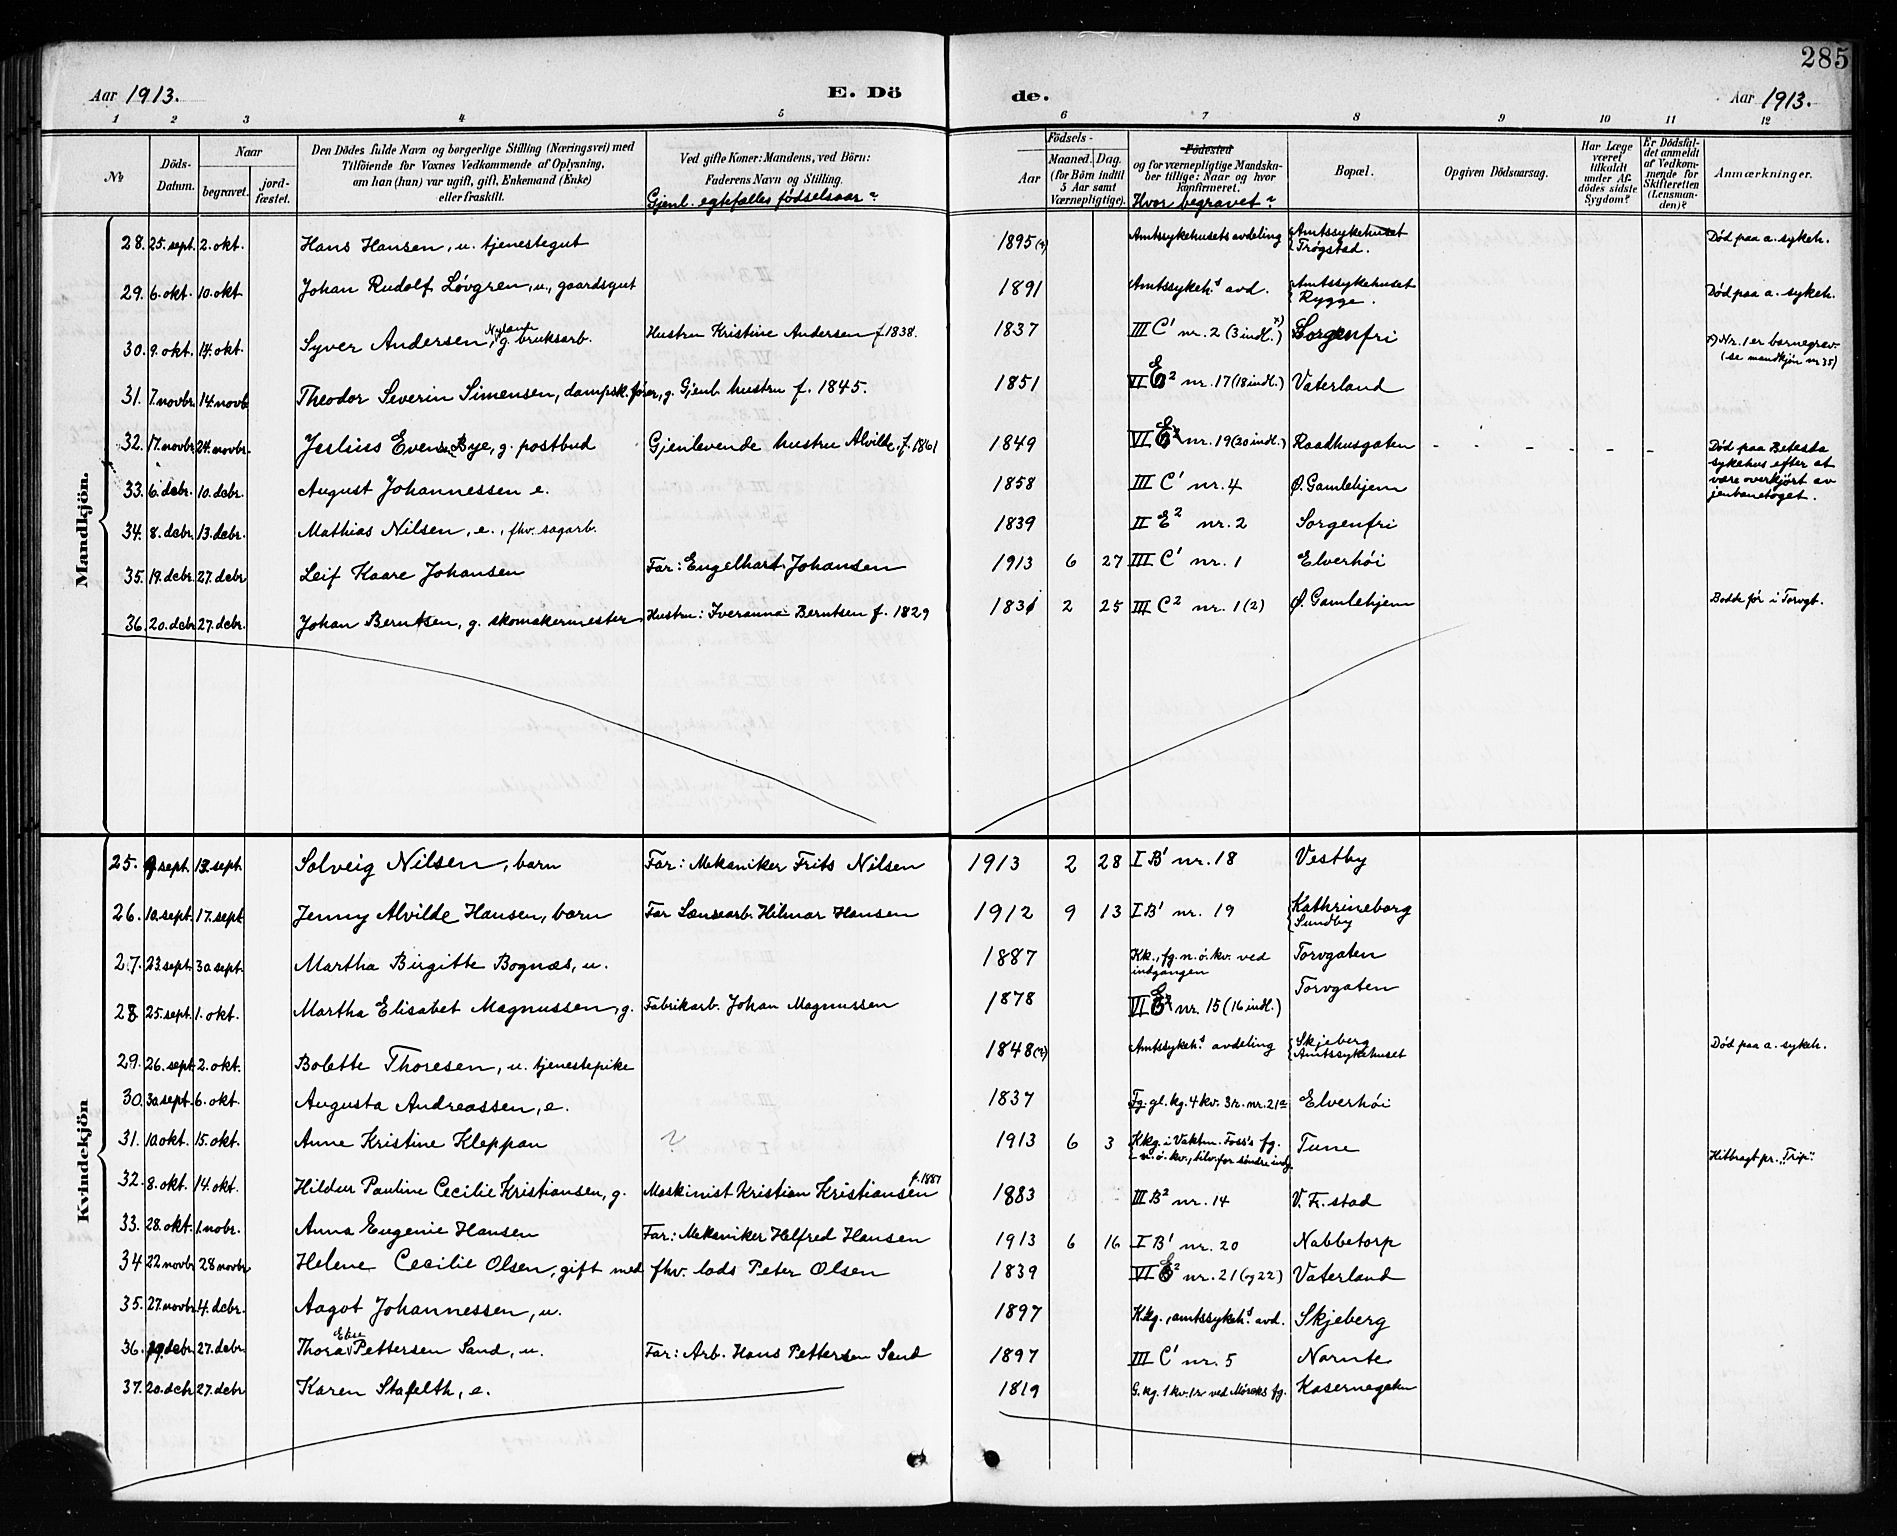 285
Aar 1913. E. Dö de. Aar 1913.
1 2 3 4 5 6 7 8 9 10 11 12
№
Döds-Datum.
Naar
begravet.
jord-fæstet.
Den Dödes fulde Navn og borgerlige Stilling (Næringsvei) med
Tilföiende for Voxnes Vedkommende af Oplysning,
om han (hun) var ugift, gift, Enkemand (Enke)
eller fraskilt.
Ved gifte Koner: Mandens, ved Börn:
Faderens Navn og Stilling.
Gjenl. egtefælles fødselsaar?
Födsels-
Aar
Maaned. Dag.
(for Börn indtil
5 Aar samt
Værnepligtige).
Födested
og for værnepligtige Mandska-
ber tillige: Naar og hvor
konfirmeret.
Hvor begravet?
Bopæl.
Opgiven Dödsaarsag.
Har Læge
været
tilkaldt
under Af-
dödes sidste
Sygdom?
Er Dödsfal-
det anmeldt
af Vedkom-
mende for
Skifteretten
(Lensman-
den)?
Anmærkninger.
Mandkjön.
28. 25. sept. 2. okt. Hans Hansen, u. tjenestegut 1895(?) Amtssykehusets avdeling Amtssykehuset Trøgstad. Død paa a. sykeh.
29. 6. okt. 10. okt Johan Rudolf Løvgren, u., gaardsgut 1891 Amtssykeh.s avd. Amtssykehuset Rygge. Død paa a. sykeh.
30. 9. okt. 14. okt. Syver Andersen, Nyland g. bruksarb. Hustru Kristine Andersen f. 1838. 1837 III C1 nr. 2 (3 indl.) x) Sorgenfri x) Nr. 1 er barnegrav. (se mandkjøn nr 35)
31. 7. novbr. 14. novb Theodor Severin Simensen, dampsk. fører, g. Gjenl. hustru f. 1845. 1851 VI E2 nr. 17 (18 indl.) Vaterland
32. 17. novbr. 24. novbr. Julius Evensen Bye, g. postbud Gjenlevende hustru Alvilde, f. 1861 1849 VI E2 nr. 19 (20 indl.) Raadhusgaten - - - - - - Død paa Betesda sykehus efter at være overkjørt av jenbanetoget.
33. 6. debr. 10. debr. August Johannessen e. 1858 III C1 nr. 4 Ø. Gamlehjem
34. 8. debr. 13. debr. Mathias Nilsen, e., fhv. sagarb. 1839 II E2 nr. 2 Sorgenfri
35. 19. debr. 27. debr. Leif Kaare Johansen Far: Engelhart Johansen 1913 6 27 III C1 nr. 1 Elverhøi
36. 20. debr 27. debr. Johan Berntsen, g. skomakermester Hustru: Iveranna Berntsen f. 1829 1831 2 25 III C2 nr. 1 (2) Ø. Gamlehjem Bodde før i Torvgt.
Kvindekjön
25. 9. sept. 13. sept. Solveig Nilsen, barn Far: Mekaniker Frits Nilsen 1913 2 28 I B1 nr. 18 Vestby
26. 10. sept. 17. sept Jenny Alvilde Hansen, barn Far Lænsearb. Hilmar Hansen 1912 9 13 I B1 nr. 19 Kathrineborg Sundby
27. 23. sept. 30. sept. Martha Birgitte Bognæs, u. 1887 Kk., fg. n. ø. kv. ved indgangen Torvgaten
28 25. sept. 1. okt. Martha Elisabet Magnussen, g. Fabrikarb. Johan Magnussen 1878 VI E2 nr. 15 (16 indl.) Torvgaten
29. 26. sept 2. okt. Bolette Thoresen, u. tjenestepike 1848 (?) Amtssykeh.s avdeling Skjeberg Amtssykehuset Død paa a. sykeh.
30. 30. sept. 6. okt. Augusta Andreassen, e. 1837 Fg. gl. kg. 4 kv. 3 r. nr. 21 Elverhøi
31. 10. okt. 15. okt. Anne Kristine Kleppan ? 1913 6 3 Kkg. i Vaktm. Foss's fg. n. ø. kv., tilv. for søndre indg. Tune Hitbragt pr. "Trip".
32. 8. okt. 14. okt. Hildur Pauline Cecilie Kristiansen, g. Maskinist Kristian Kristiansen f. 1887 1883 III B2 nr. 14 V. Fr. stad
33. 28. okt. 1. nobr. Anna Eugenie Hansen Far: Mekaniker Helfred Hansen 1913 6 16 I B1 nr. 20 Nabbetorp
34 22 novbr 28 novbr Helene Cecilie Olsen, gift med fhv. lods Peter Olsen 1839 VI E2 nr. 21 (og 22) Vaterland
35. 27. novbr 4. debr. Aagot Johannessen, u. 1897 Kkg., amtssykeh.s avd. Skjeberg
36. 19. debr 27. debr. Thora Elise Pettersen Sand, u. Far: Arb. Hans Pettersen Sand 1897 III C1 nr. 5 Narnte
37. 20. debr 27. debr Karen Stafelth, e. 1819 G. kg. 1 kv. 1 r ved fg. Kasernegaten